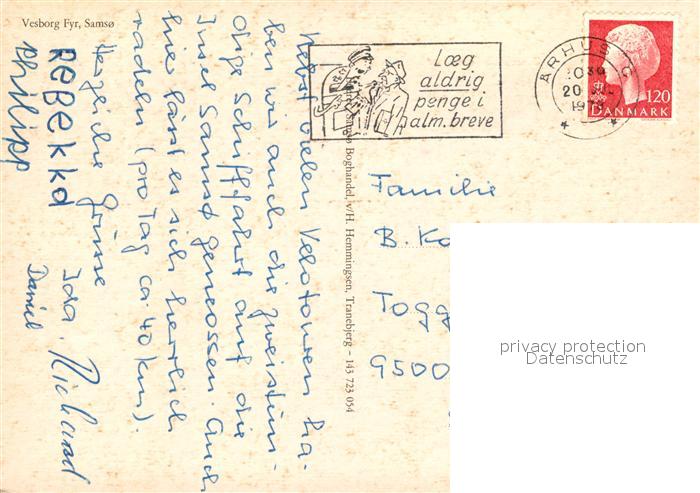 Vesborg Fyr, Samsø
Nebst vielen Velotouren ha-
ben wir auch die zweistün-
dige Schifffahrt auf die
Insel Samsø genossen. Auch
hier lässt es sich herrlich
radeln (pro Tag ca. 40 km).
Herzliche Grüsse
Ida. Richard
Daniel
REBEKKA
Philipp
Boghandel, v/H. Hemmingsen, Tranebjerg – 143 723 054
Læg
aldrig
penge i
alm. breve
ÅRHUS C
20
120
DANMARK
Familie
B. Ko
Togg
9500
privacy protection
Datenschutz